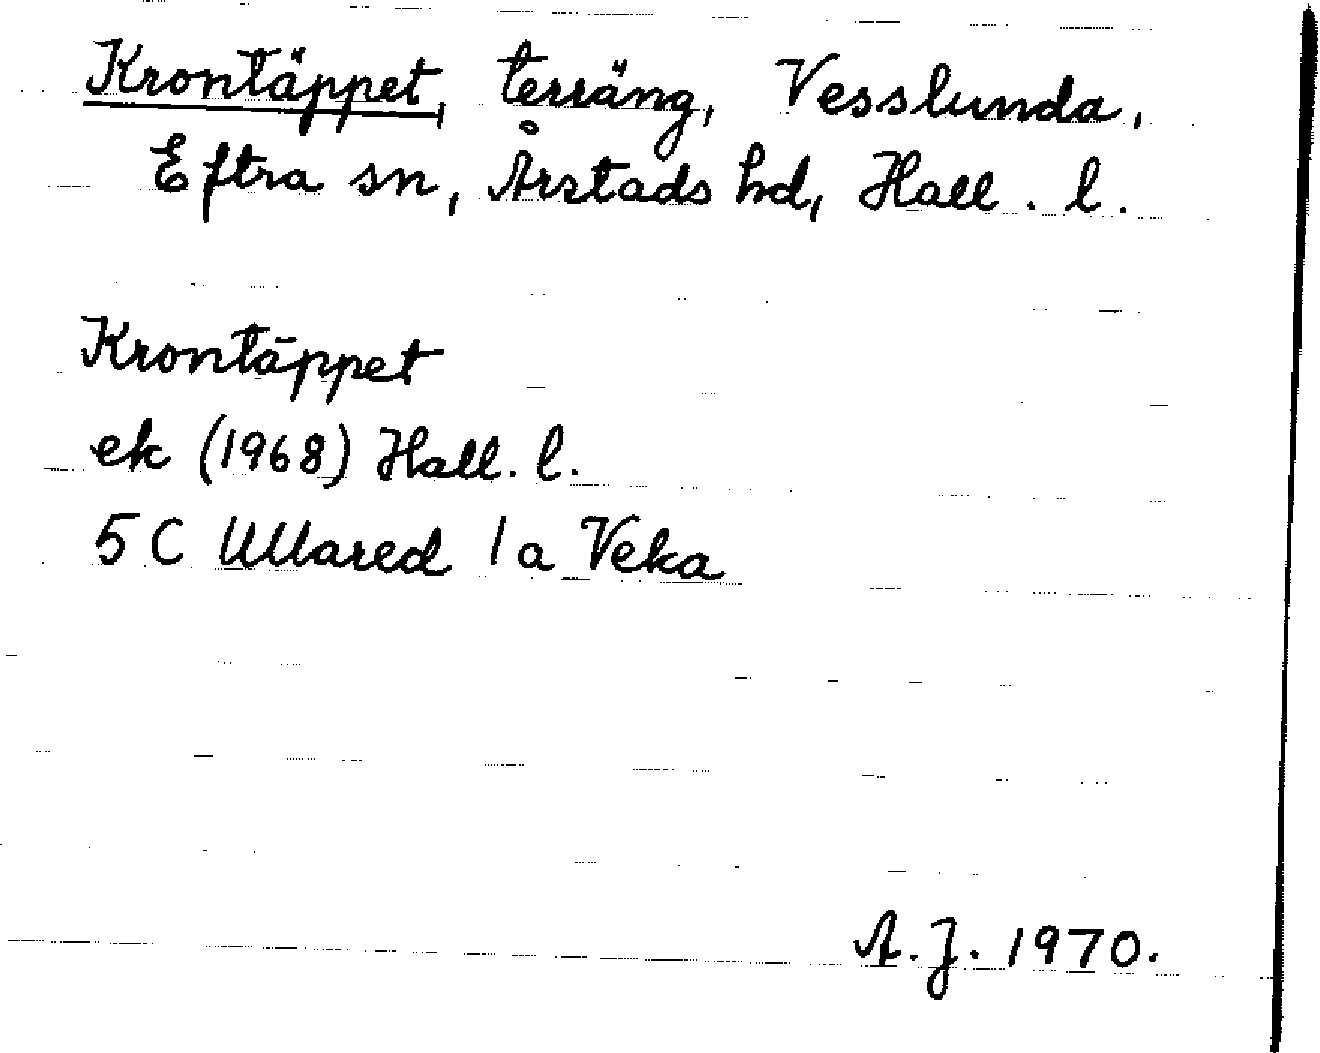 Krontäppet, terräng, Vesslunda,
Eftra sn, Årstads hd, Hall. l.
Krontäppet
ek (1968) Hall. l.
5 C Ullared 1 a Veka
A. J. 1970.